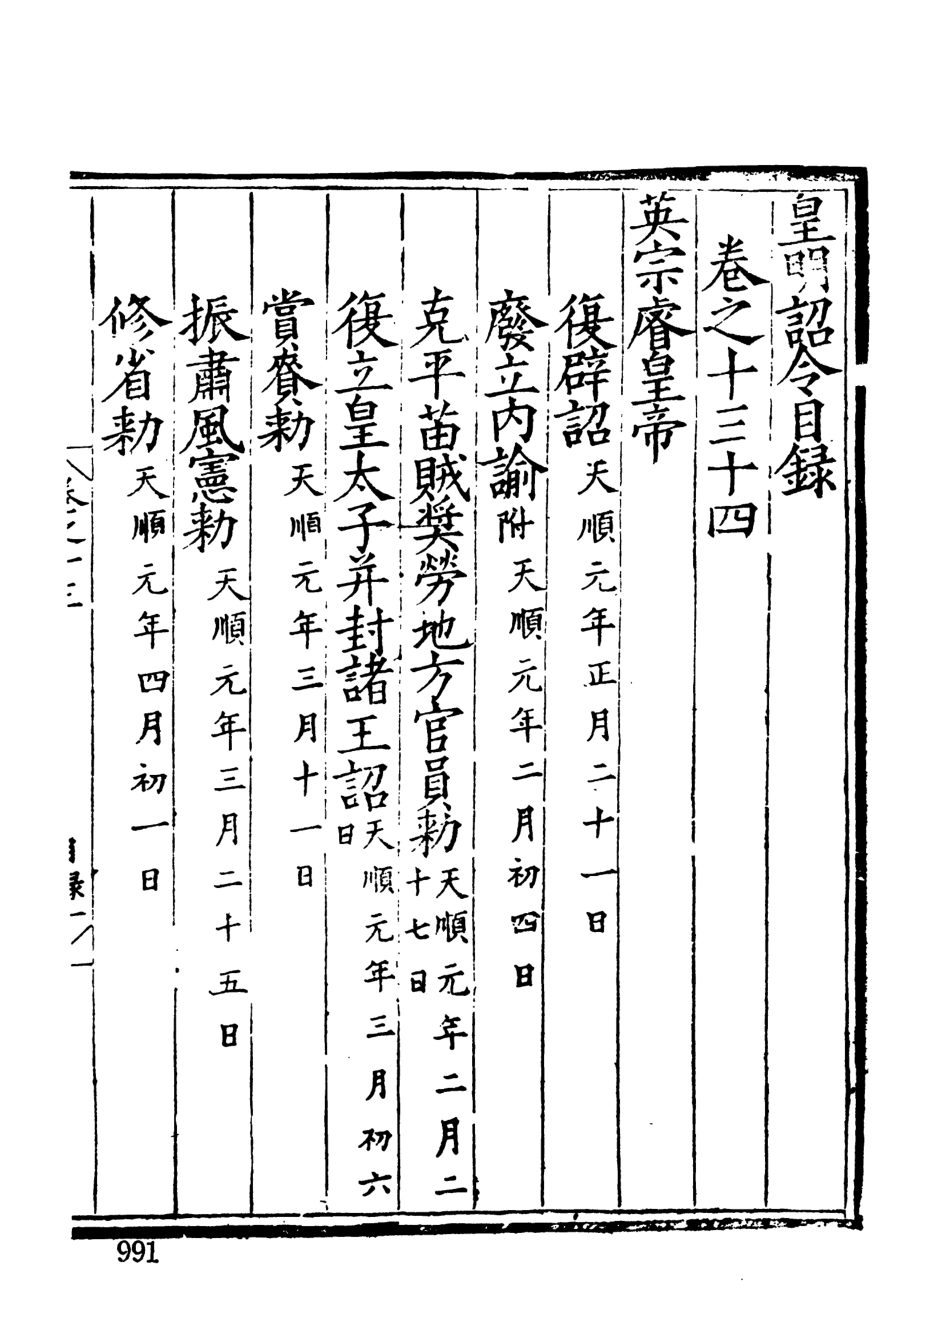 皇明詔令目録
卷之十三十四
英宗睿皇帝
復辟詔 天順元年正月二十一日
廢立內諭 附 天順元年二月初四日
克平苗賊奨勞地方官員勑 天順元年二月二十七日
復立皇太子并封諸王詔 天順元年三月初六日
賞賚勑 天順元年三月十一日
振肅風憲勑 天順元年三月二十五日
修省勑 天順元年四月初一日
卷之十三
目録一
991